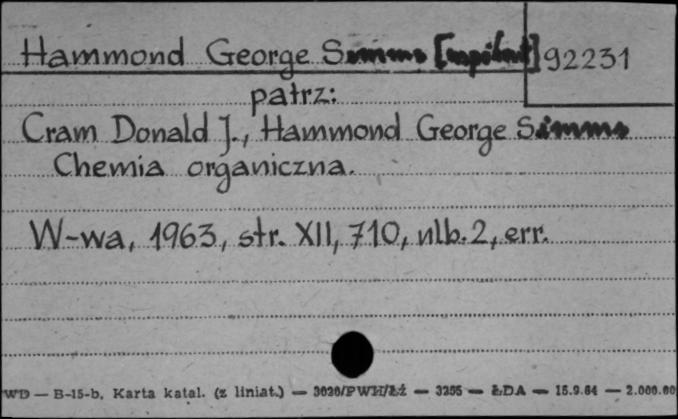 Hammond George Simms [współaut] 92231
patrz:
Cram Donald J., Hammond George Simms
Chemia organiczna.
W-wa, 1963, str. XII, 710, nlb. 2, err.
WD — B-15-b. Karta katal. (z liniat.) — 3020/PWH/Łź — 3255 — ŁDA — 15.9.64 — 2.000.00